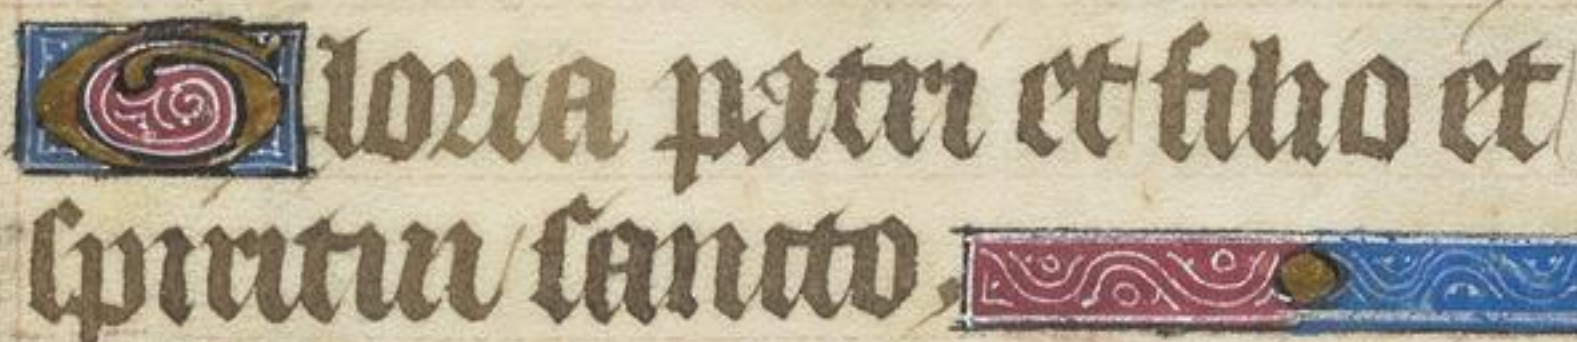 Gloria patri et filio et
spiritui sancto.